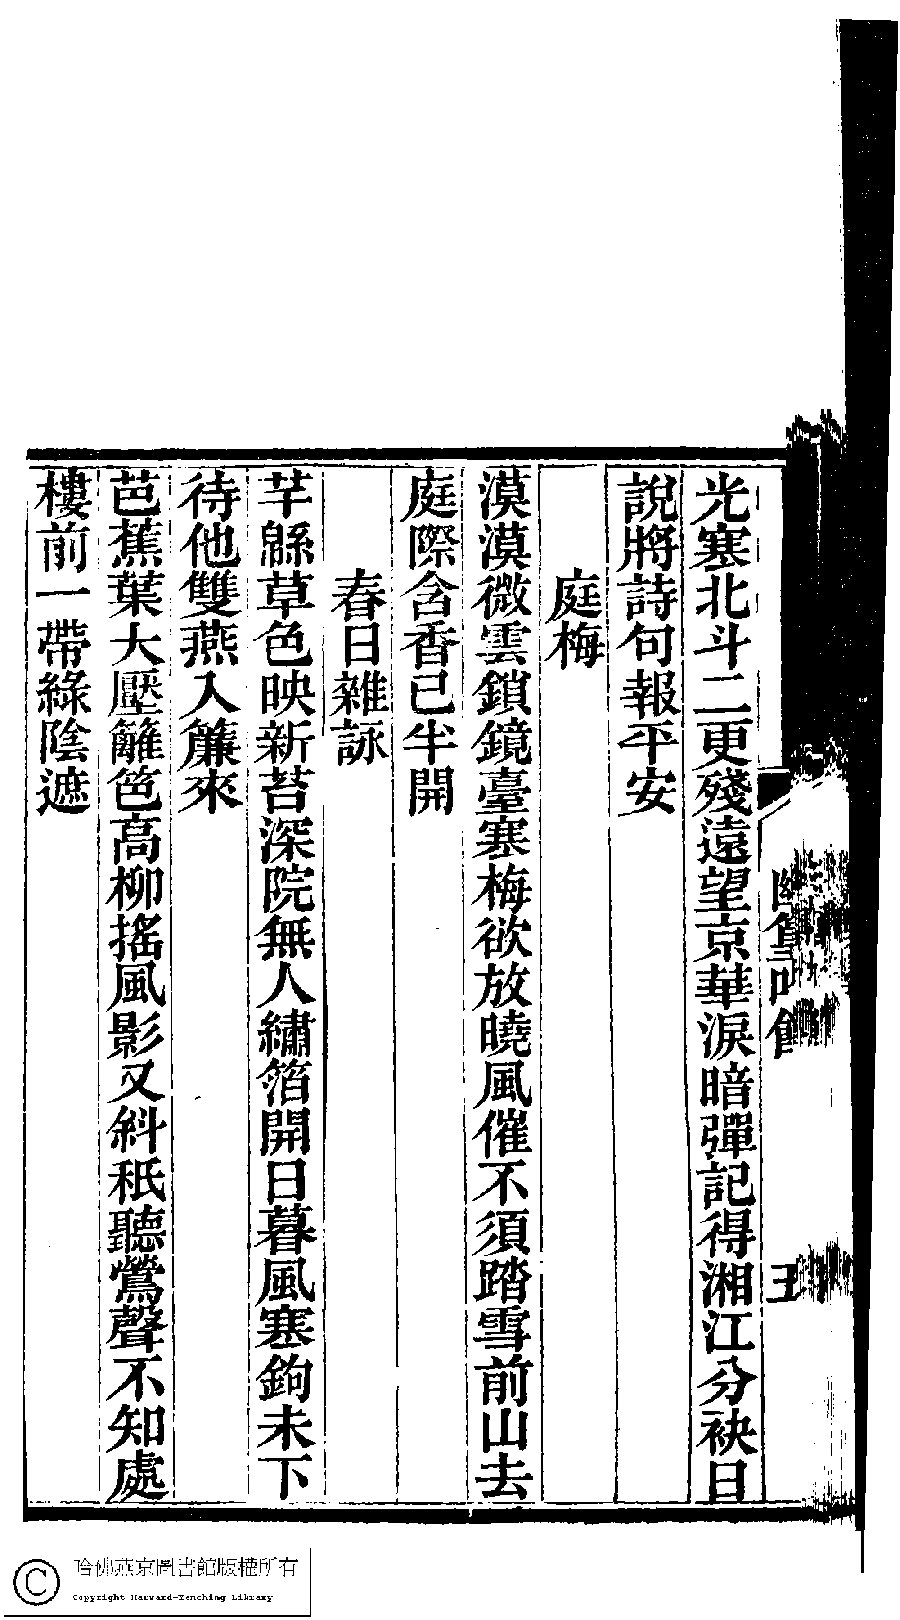 光寒北斗二更殘遠望京華淚暗彈記得湘江分袂日
說將詩句報平安
庭梅
漠漠微雲鎖鏡臺寒梅欲放曉風催不須踏雪前山去
庭際含香已半開
春日雜詠
芊緜草色映新苔深院無人繡箔開日暮風寒鉤未下
待他雙燕入簾來
芭蕉葉大壓籬笆高柳搖風影又斜秖聽鶯聲不知處
樓前一帶綠陰遮
五
哈佛燕京圖書館版權所有
Copyright Harvard-Yenching Library